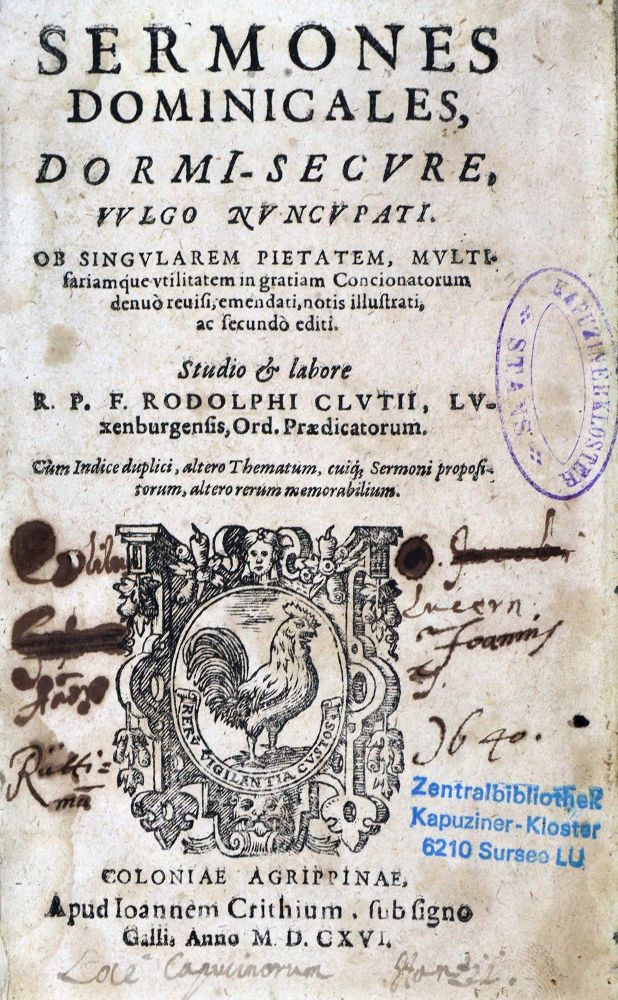 SERMONES
DOMINICALES,
DORMI-SECVRE,
VVLGO NVNCVPATI.
OB SINGVLAREM PIETATEM, MVLTI-
fariamque vtilitatem in gratiam Concionatorum
denuò reuisi, emendati, notis illustrati,
ac secundò editi.
Studio & labore
R. P. F. RODOLPHI CLVTII, LV-
xenburgensis, Ord. Prædicatorum.
Cùm Indice duplici, altero Thematum, cuiq; Sermoni proposi-
torum, altero rerum memorabilium.
KAPUZINERKLOSTER
STANS
Lucern
Joannis
Rütti-
mā
1640.
RERV̄ VIGILANTIA CVSTOS
Zentralbibliothek
Kapuziner-Kloster
6210 Sursee LU
COLONIAE AGRIPPINAE,
Apud Ioannem Crithium. sub signo
Galli, Anno M. D. CXVI.
Loci Capucinorum Stantij.